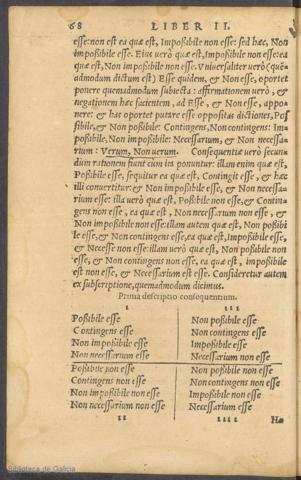 68 LIBER II.
esse: non est ea quæ est, Impoßibile non esse: sed hæc, Non
impoßibile esse. Eius verò quæ est, Impoßibile non esse: ea
quæ est, Non impoßibile non esse. Vniuersaliter verò (quẽ
admodum dictum est) Esse quidem, & Non esse, oportet
ponere quemadmodum subiecta: affirmationem verò, &
negationem hæc facientem, ad Esse, & Non esse, appo-
nere: & has oportet putare esse oppositas dictiones, Pos
sibile, & Non poßibile: Contingens, Non contingens: Im-
poßibile, Non impoßibile: Necessarium, & Non necessa-
rium: Verum, Non uerum. Consequentiæ verò secun-
dum rationem fiunt cùm ita ponuntur: illam enim quæ est,
Poßibile esse, sequitur ea quæ est, Contingit esse, & hæc
illi conuertitur: & Non impoßibile esse, & Non necessa-
rium esse: illa verò quæ est, Poßibile non esse, & Contin-
gens non esse, ea quæ est, Non necessarium non esse, &
Non impoßibile non esse: illam autem quæ est, Non poßibi
le esse, & Non contingens esse, ea quæ est, Impoßibile esse,
& Necesse non esse: illam verò quæ est, Non poßibile non
esse, & Non contingens non esse, ea quæ est, impoßibile
est non esse, & Necessarium est esse. Consideretur autem
ex subscriptione, quemadmodum dicimus.
Prima descriptio consequentium.
I III
Poßibile esse Non poßibile esse
Contingens esse Non contingens esse
Non impoßibile esse Impoßibile esse
Non necessarium esse Necessarium non esse
Poßibile non esse Non poßibile non esse
Contingens non esse Non contingens non esse
Non impoßibile non esse Impoßibile non esse
Non necessarium non esse Necessarium esse
II IIII Hæ
Biblioteca de Galicia